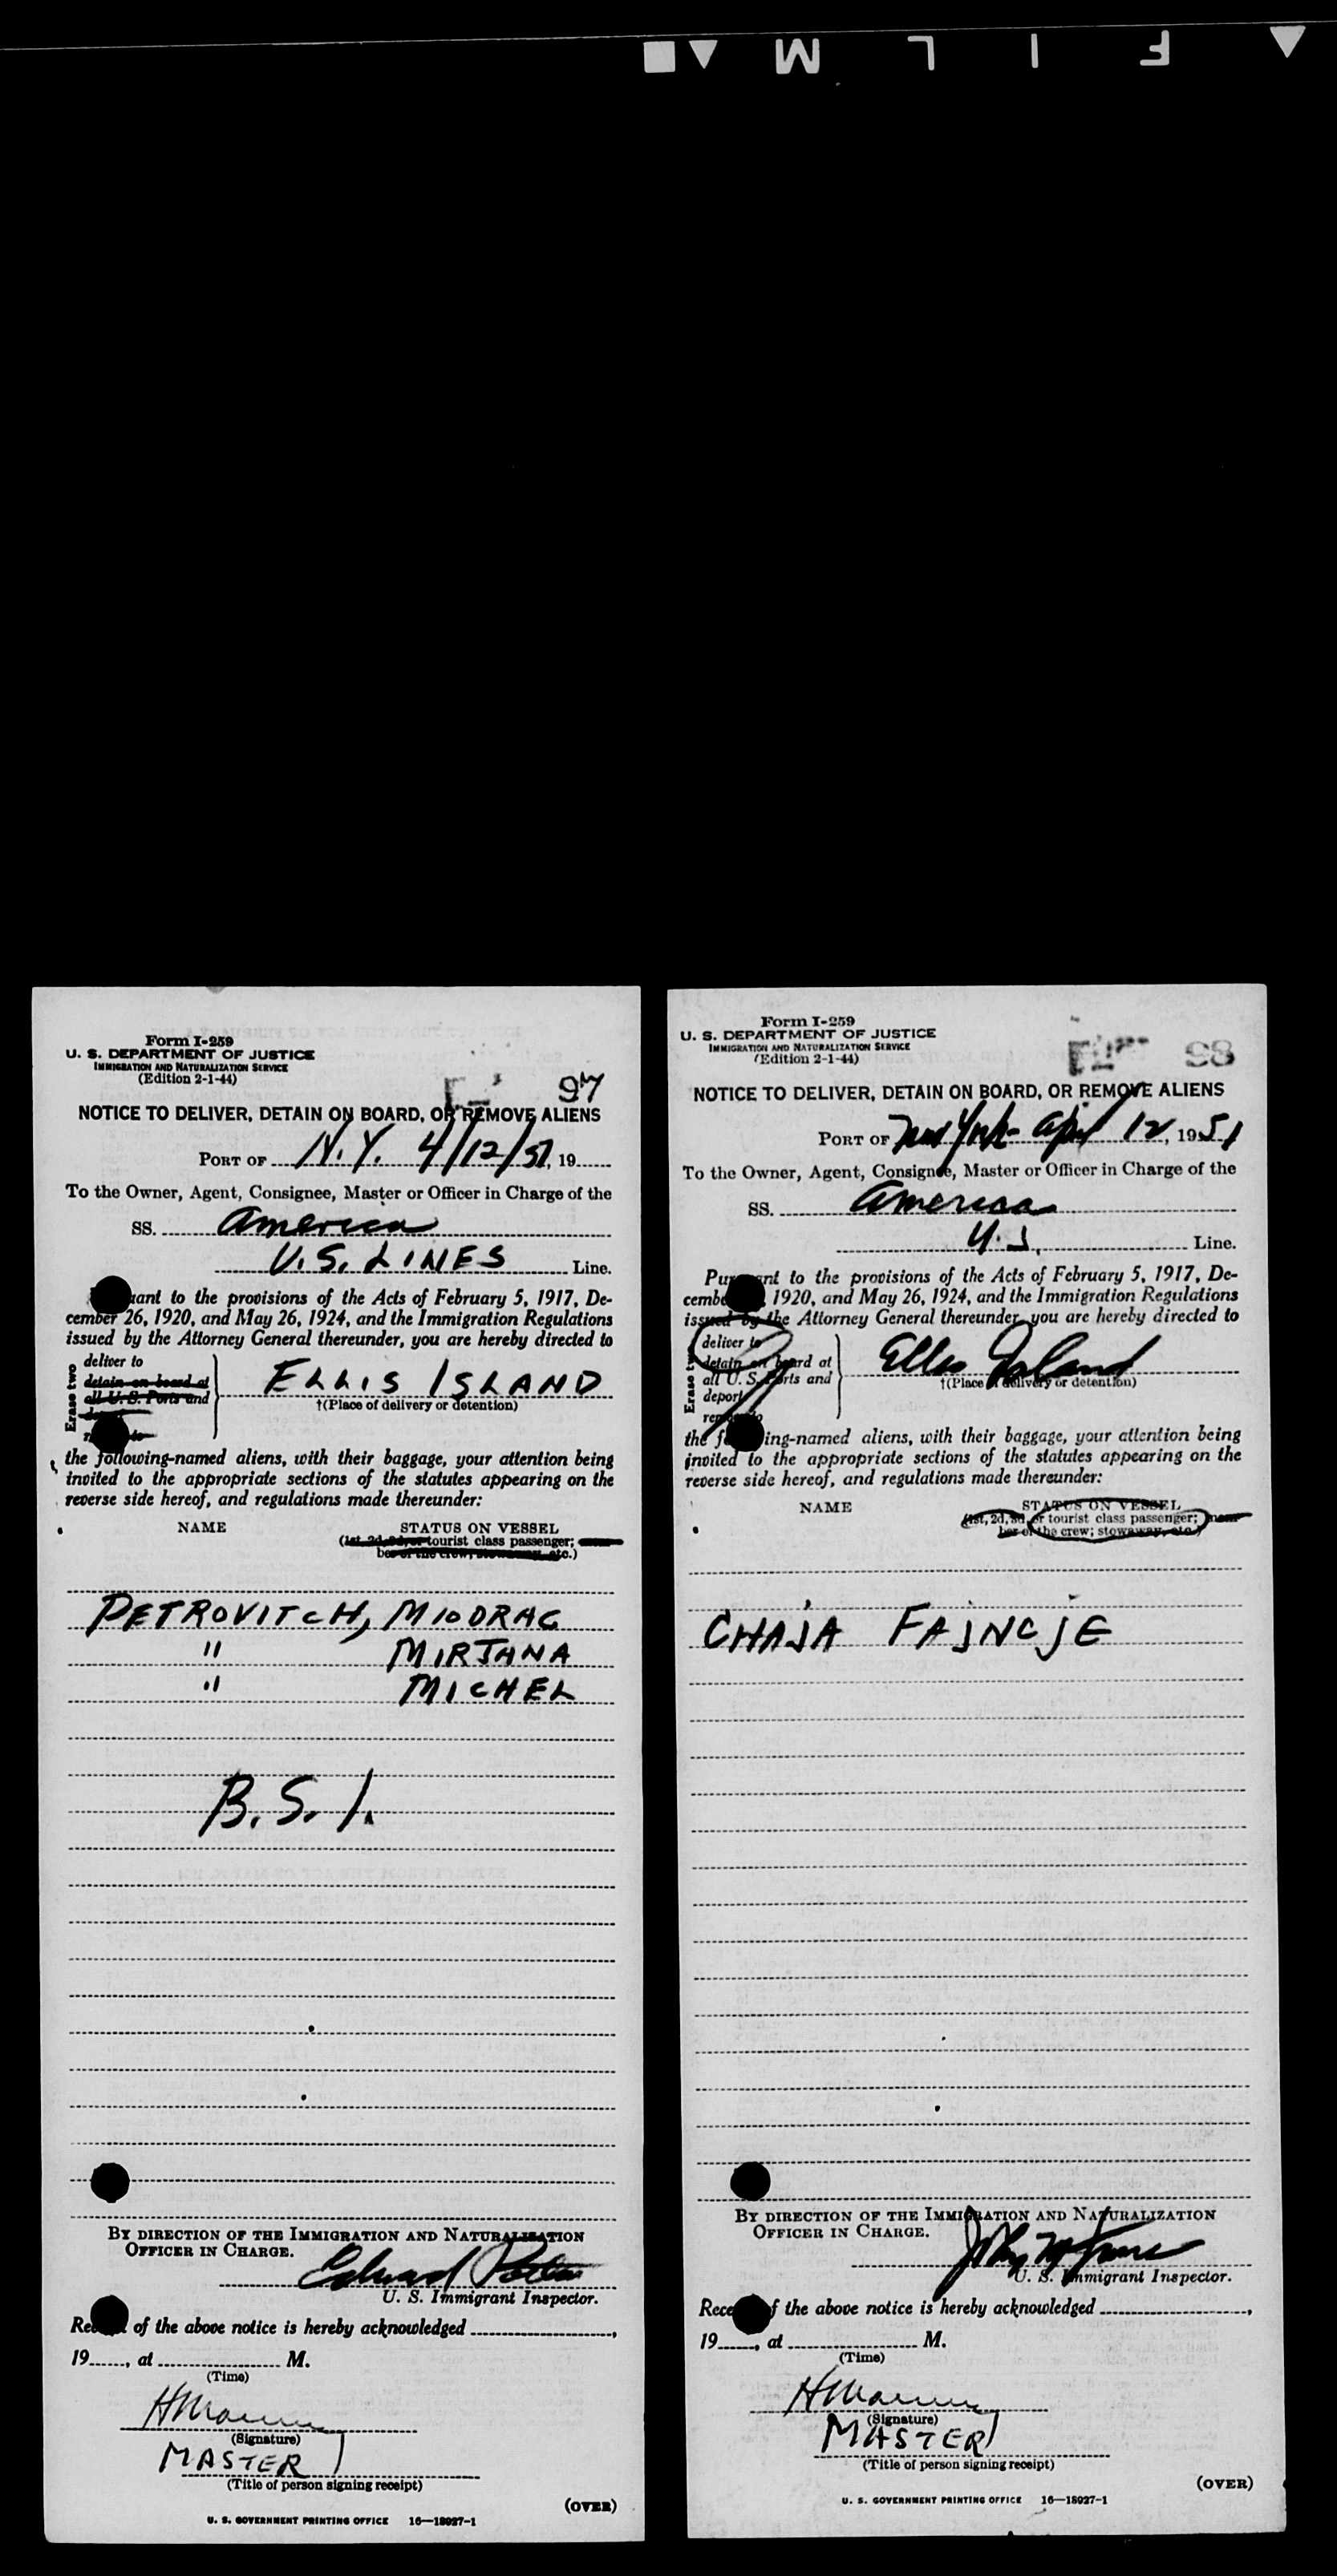 FILM
Form I-259
U. S. DEPARTMENT OF JUSTICE
IMMIGRATION AND NATURALIZATION SERVICE
(Edition 2-1-44)
97
NOTICE TO DELIVER, DETAIN ON BOARD, OR REMOVE ALIENS
PORT OF N.Y. 4/12/51, 19
To the Owner, Agent, Consignee, Master or Officer in Charge of the
SS. America
U.S. LINES Line.
uant to the provisions of the Acts of February 5, 1917, De-
cember 26, 1920, and May 26, 1924, and the Immigration Regulations
issued by the Attorney General thereunder, you are hereby directed to
Erase two
deliver to
detain on board at
all U. S. Ports and
ELLIS ISLAND
†(Place of delivery or detention)
the following-named aliens, with their baggage, your attention being
invited to the appropriate sections of the statutes appearing on the
reverse side hereof, and regulations made thereunder:
NAME STATUS ON VESSEL
(1st, 2d, 3d, or tourist class passenger;
ber of the crew; stowaway, etc.)
PETROVITCH, MIODRAG
" MIRJANA
" MICHEL
B.S.I.
BY DIRECTION OF THE IMMIGRATION AND NATURALIZATION
OFFICER IN CHARGE.
Edward
U. S. Immigrant Inspector.
of the above notice is hereby acknowledged ,
19 , at M.
(Time)
(Signature)
MASTER
(Title of person signing receipt)
(OVER)
U. S. GOVERNMENT PRINTING OFFICE 16—18027-1
Form I-259
U. S. DEPARTMENT OF JUSTICE
IMMIGRATION AND NATURALIZATION SERVICE
(Edition 2-1-44)
98
NOTICE TO DELIVER, DETAIN ON BOARD, OR REMOVE ALIENS
PORT OF New York April 12, 1951
To the Owner, Agent, Consignee, Master or Officer in Charge of the
SS. America
U.S. Line.
Pursuant to the provisions of the Acts of February 5, 1917, De-
cember 1920, and May 26, 1924, and the Immigration Regulations
issued by the Attorney General thereunder, you are hereby directed to
Erase two
deliver to
detain on board at
all U. S. Ports and
deport
Ellis Island
†(Place of delivery or detention)
the following-named aliens, with their baggage, your attention being
invited to the appropriate sections of the statutes appearing on the
reverse side hereof, and regulations made thereunder:
NAME STATUS ON VESSEL
(1st, 2d, 3d, or tourist class passenger;
ber of the crew; stowaway, etc.)
CHAJA FAJNCJE
BY DIRECTION OF THE IMMIGRATION AND NATURALIZATION
OFFICER IN CHARGE.
U. S. Immigrant Inspector.
of the above notice is hereby acknowledged ,
19 , at M.
(Time)
(Signature)
MASTER
(Title of person signing receipt)
(OVER)
U. S. GOVERNMENT PRINTING OFFICE 16—18027-1